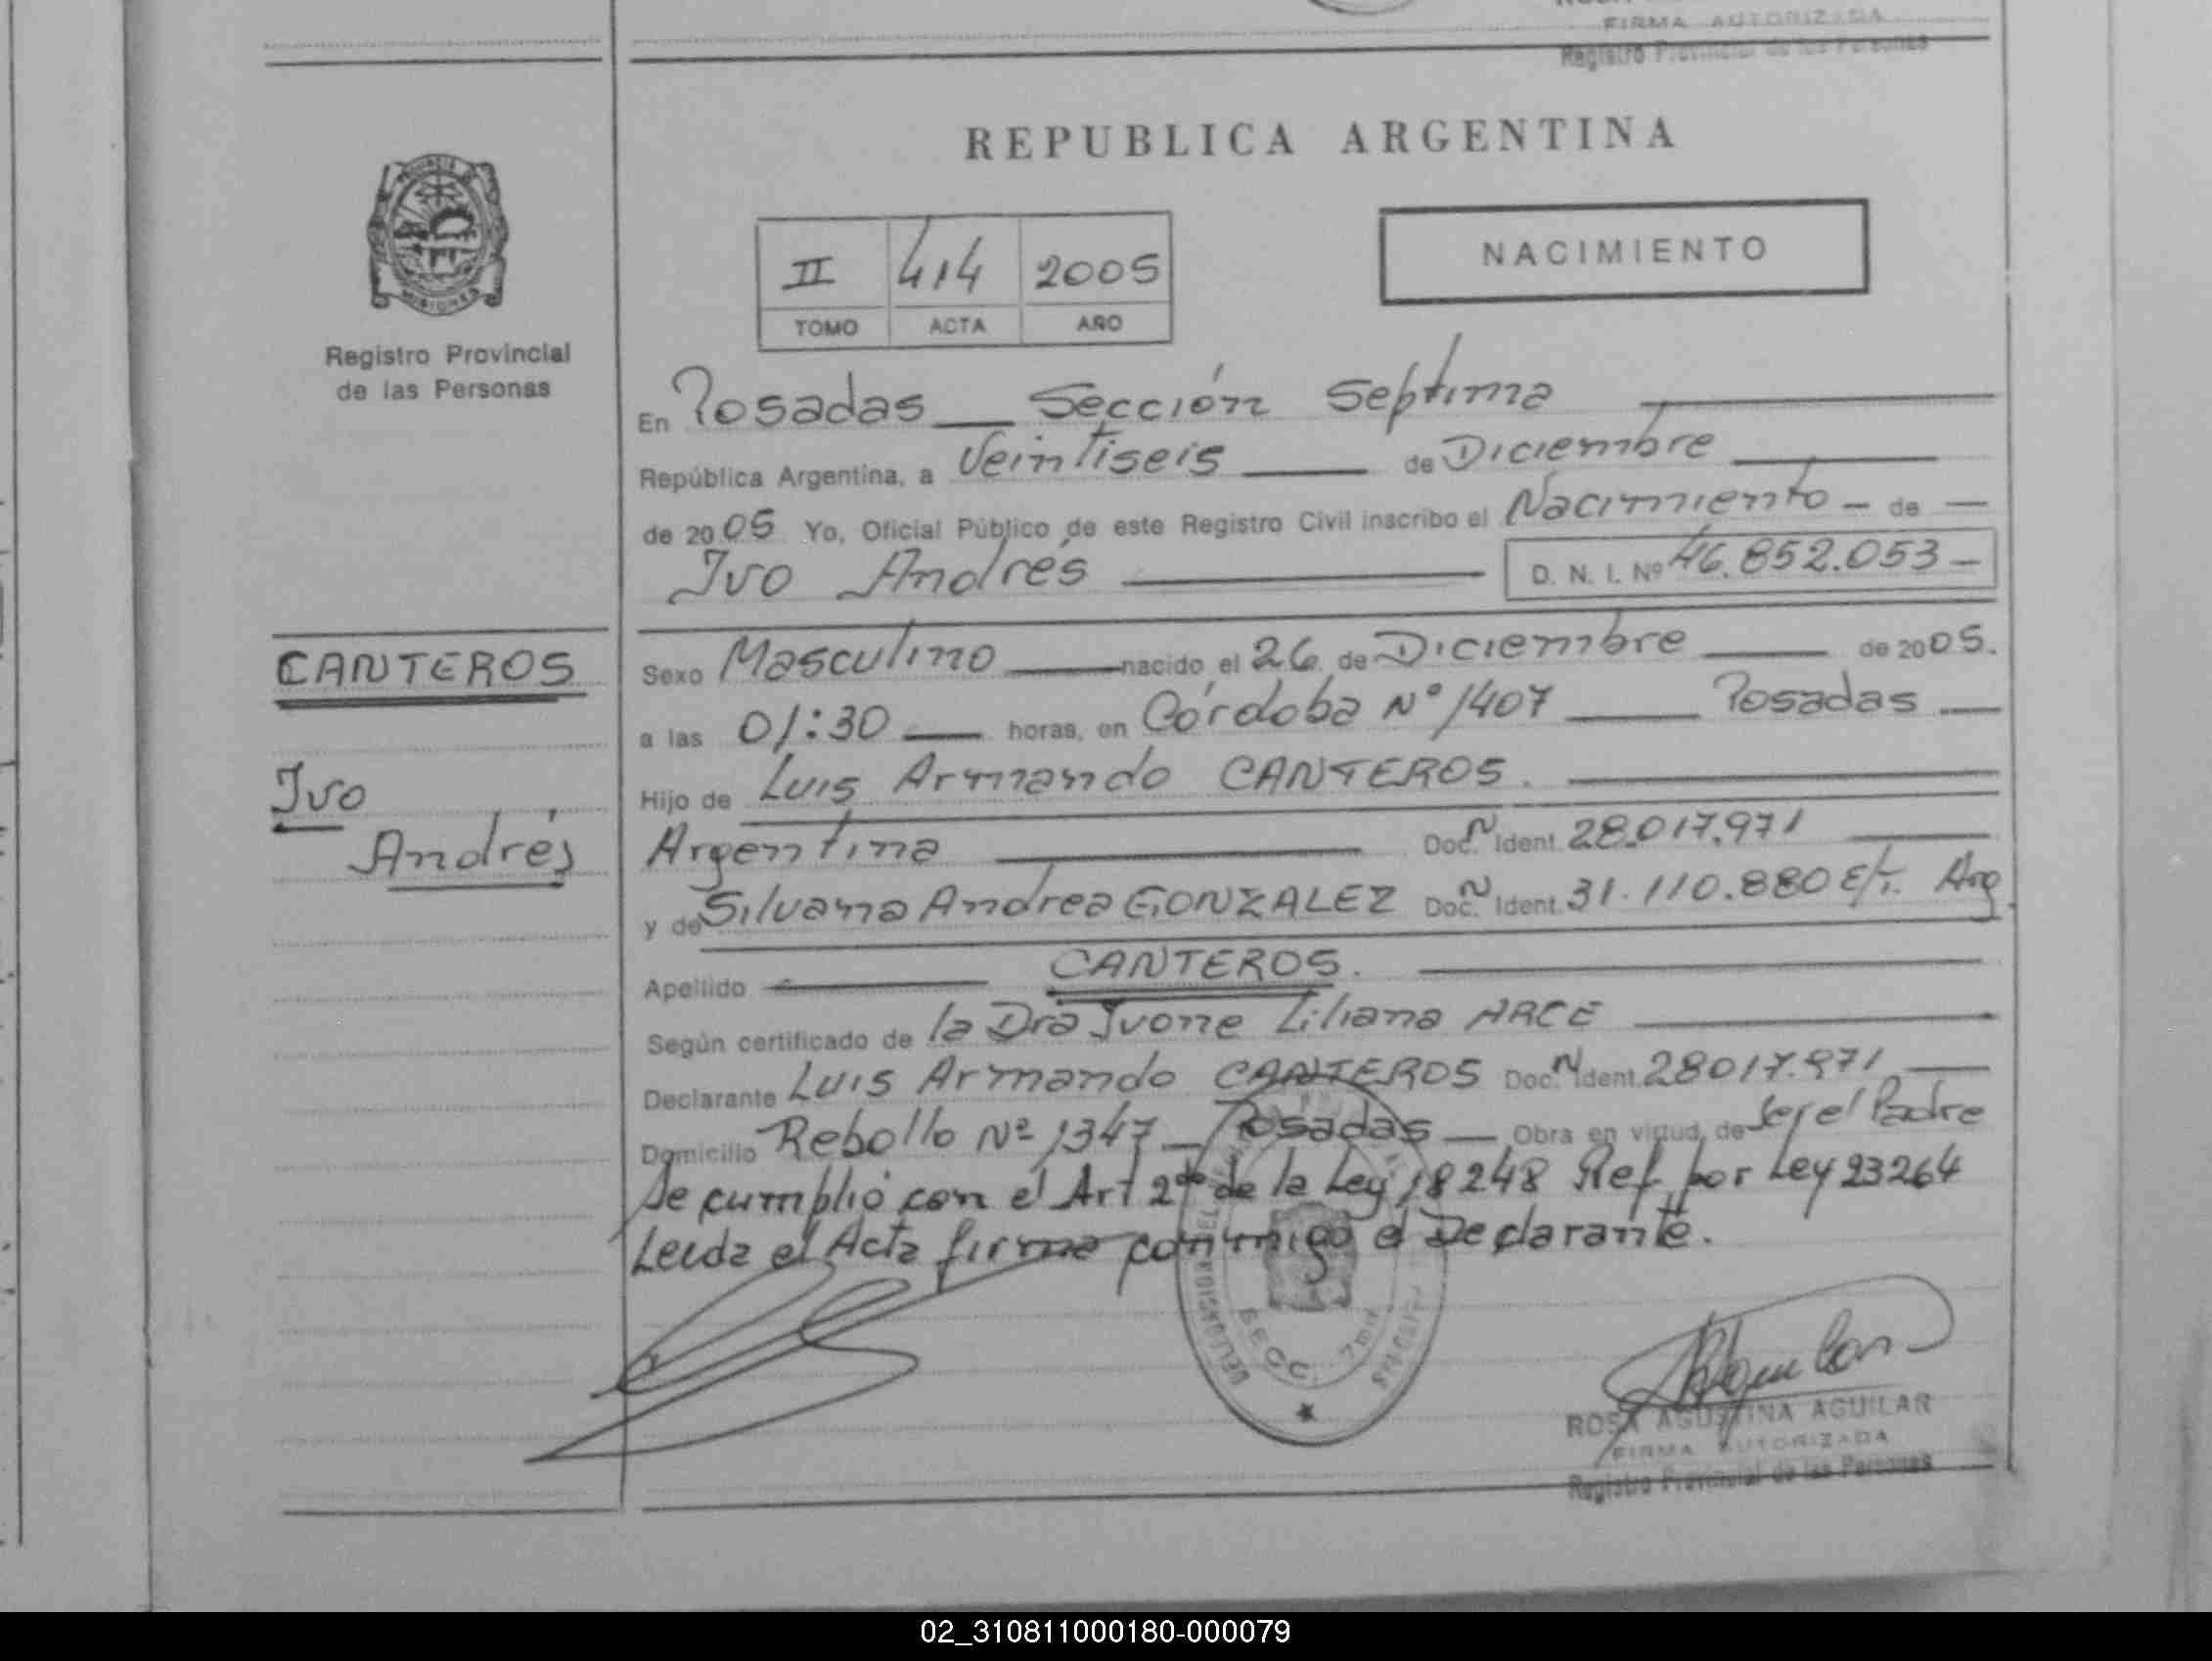 FIRMA AUTORIZADA
Registro Provincial de las Personas
REPUBLICA ARGENTINA
MISIONES
Registro Provincial
de las Personas
II 414 2005
TOMO ACTA AÑO
NACIMIENTO
En Posadas Sección Septima
República Argentina, a Veintiseis de Diciembre
de 2005 Yo, Oficial Público de este Registro Civil inscribo el Nacimiento - de -
Ivo Andrés D. N. I. Nº 46.852.053 -
CANTEROS
Ivo
Andrés
Sexo Masculino nacido el 26 de Diciembre de 2005.
a las 01:30 horas, en Córdoba Nº 1407 Posadas
Hijo de Luis Armando CANTEROS.
Argentina Doc. N Ident. 28.017.971
y de Silvana Andrea GONZALEZ Doc. N Ident. 31.110.880 E/T. Arg.
Apellido CANTEROS.
Según certificado de la Dra Ivone Liliana ARCE
Declarante Luis Armando CANTEROS Doc. N Ident. 28017.971
Domicilio Rebollo Nº 1347 - Posadas - Obra en virtud de ser el Padre
Se cumplió con el Art 2do de la Ley 18248 Ref. por Ley 23264
Leida el Acta firma conmigo el Declarante.
SECC. 7ma
ROSA AGUSTINA AGUILAR
FIRMA AUTORIZADA
Registro Provincial de las Personas
02_310811000180-000079